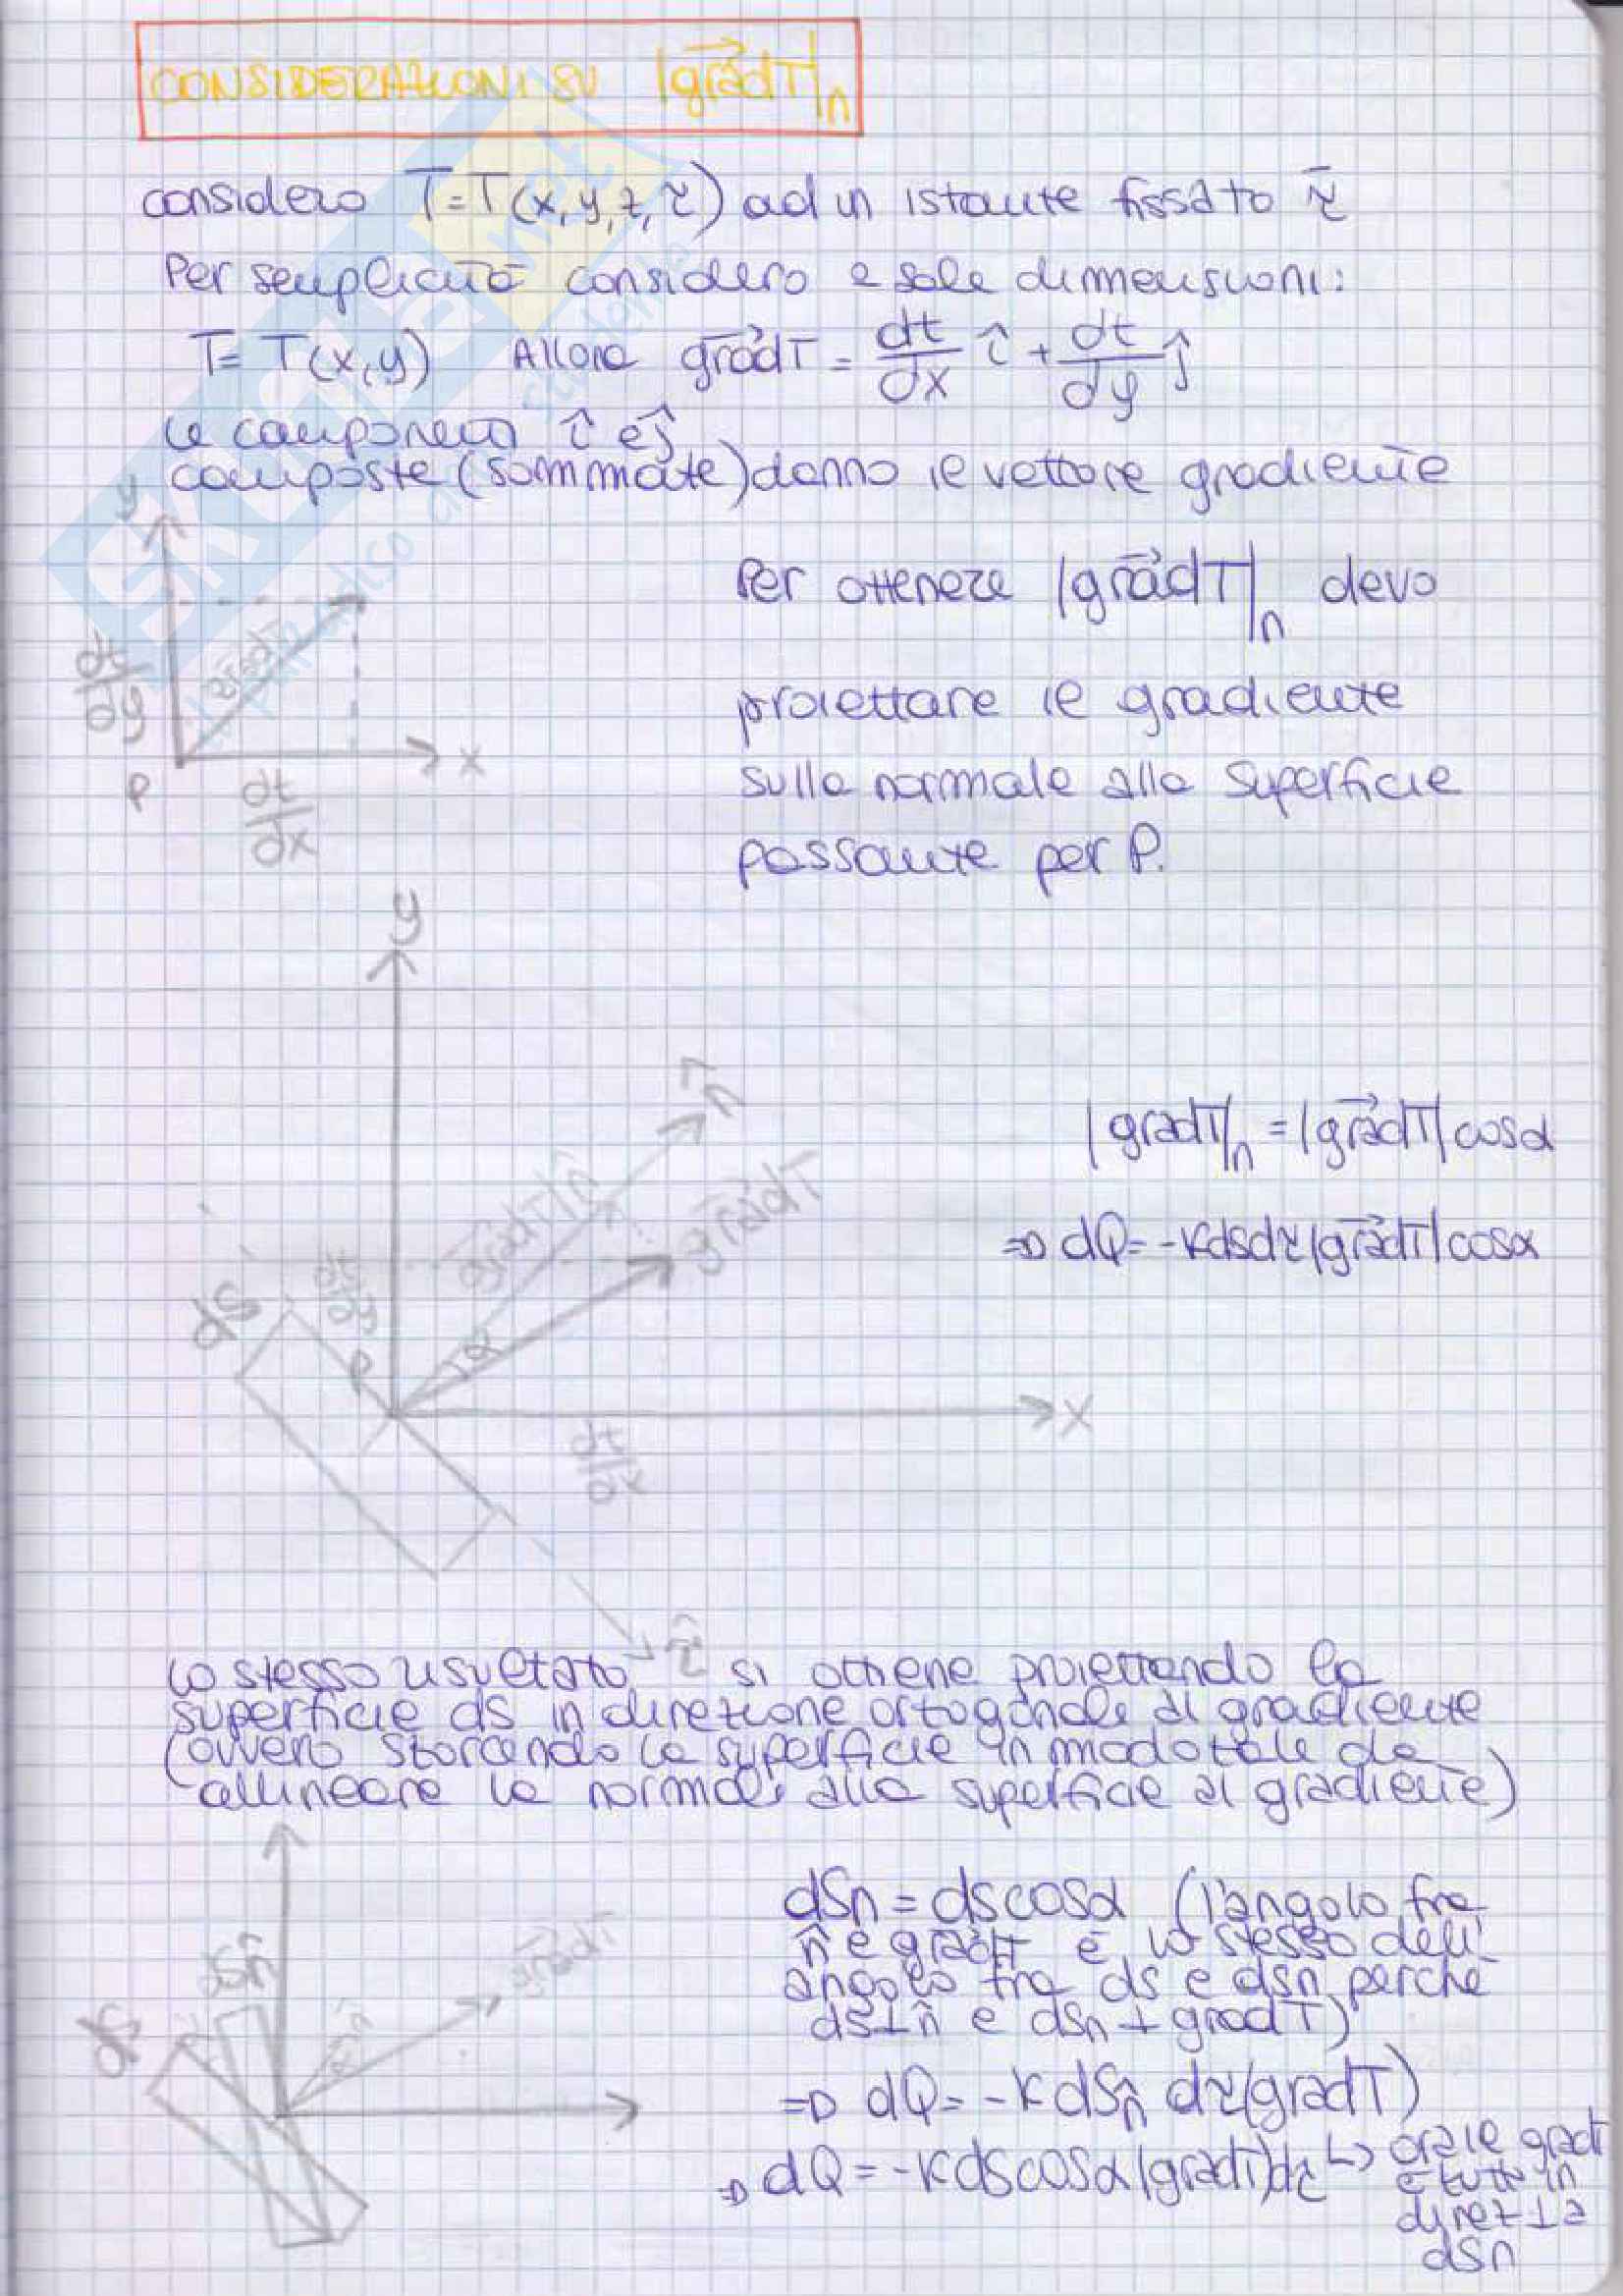 CONSIDERAZIONI SU |grad T|n
considero T=T(x,y,z,τ) ad un istante fissato τ̄
Per semplicità considero 2 sole dimensioni:
T=T(x,y) Allora grad T = dt/dx î + dt/dy ĵ
le componenti î e ĵ
composte (sommate) danno il vettore gradiente
y
grad T
dt/dy
P
x
dt/dx
Per ottenere |grad T|n devo
proiettare il gradiente
sulla normale alla superficie
passante per P.
y
n̂
|grad T|n = |grad T| cosα
grad T|n̂
grad T
=> dQ = -K ds dτ |grad T| cosα
ds
dt/dy
P
α
x
dt/dx
τ̂
Lo stesso risultato si ottiene proiettando la
superficie ds in direzione ortogonale al gradiente
(ovvero storcendo la superficie in modo tale da
allineare la normale alla superficie al gradiente)
dSn = ds cosα (l'angolo fra
n̂ e grad T è lo stesso dell'
angolo fra ds e dsn perché
ds ⊥ n̂ e dsn ⊥ grad T)
dSn̂
grad T
ds
α
n̂
=> dQ = -K dSn̂ dτ (grad T)
=> dQ = -K ds cosα (grad T) dτ ↳ ora il grad T
è tutto in
direz ⊥ a
dSn
SKUOLA.net